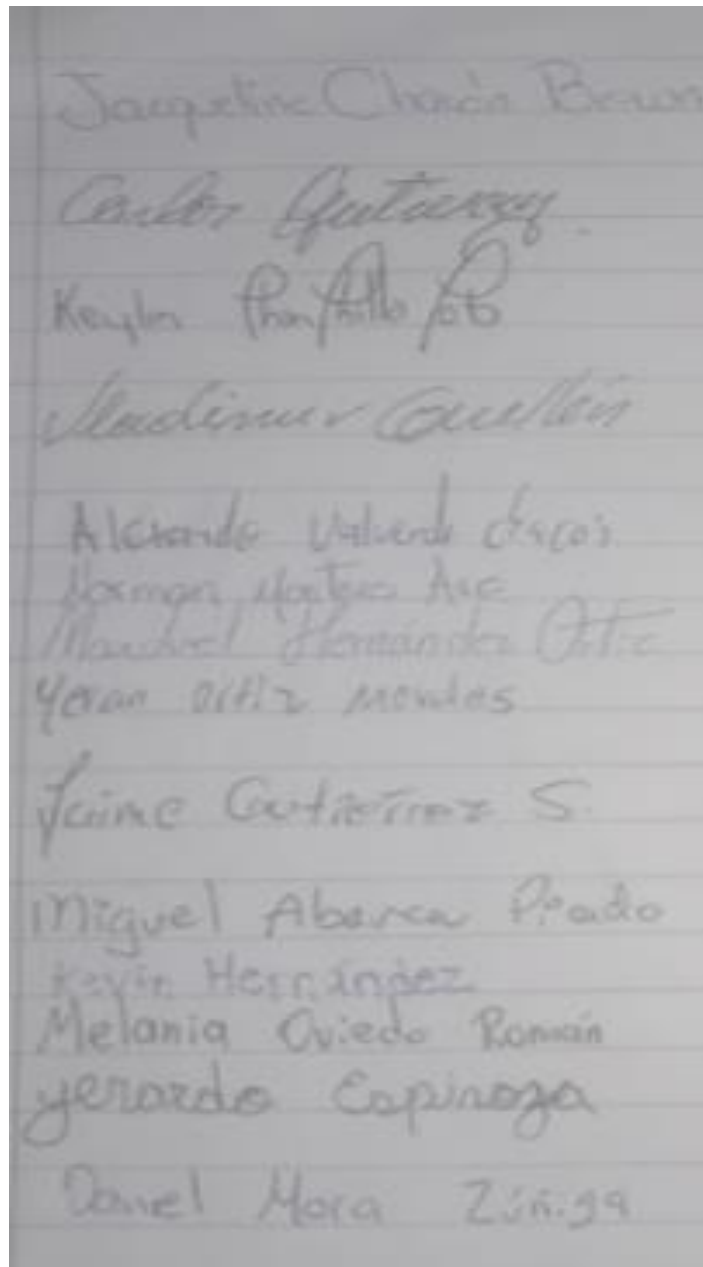 Jacqueline Chacón Brown
Carlos Gutierrez.
Keylor
Vladimir
Alexander Valverde
Norman Montero
Hernández Ortiz
Yeran Ortiz Mendes
Jaime Gutierrez S.
Miguel Abarca Prado
Kevin Hernández
Melania Oviedo Román
Yerardo Espinoza
Daniel Mora Zúñiga